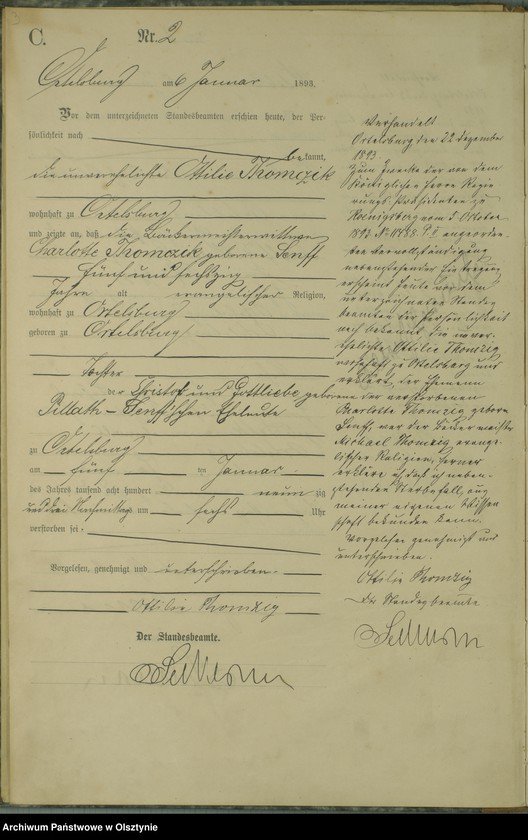 C.
Nr. 2
Ortelsburg am 6 Januar 1893.
Vor dem unterzeichneten Standesbeamten erschien heute, der Per-
sönlichkeit nach
bekannt,
die unverehelichte Ottilie Thomczik
wohnhaft zu Ortelsburg
und zeigte an, daß die Bäckermeisterwittwe
Charlotte Thomczik geborene Senff
fünf und sechszig
Jahre alt evangelischer Religion,
wohnhaft zu Ortelsburg
geboren zu Ortelsburg
Tochter
der Christof und Gottliebe geborene
Pillath - Senff'schen Eheleute
zu Ortelsburg
am fünf ten Januar
des Jahres tausend acht hundert neun zig
und drei Nachmittags um sechs Uhr
verstorben sei.
Vorgelesen, genehmigt und unterschrieben.
Ottilie Thomzig
Der Standesbeamte.
Verhandelt
Ortelsburg den 22 Dezember
1893.
Zum Zwecke der von dem
Königlichen Herrn Regie
rungs Präsidenten zu
Koenigsberg vom 5 Oktober
1893. angeordne
ten Vervollständigung
nebenstehender Eintragung
erscheint heute vor dem
unterzeichneten Standes
beamten der Persönlichkeit
nach bekannt, die unver-
ehelichte Ottilie Thomzig
wohnhaft zu Ortelsburg und
erklärt, der Ehemann
der verstorbenen
Charlotte Thomzig geborne
Senff, war der Bäckermeister
Michael Thomzig evange-
lischer Religion, ferner
erkläre ich, daß ich neben-
stehenden Sterbefall, aus
meiner eigenen Wissen
schaft bekunden kann.
Vorgelesen genehmigt und
unterschrieben.
Ottilie Thomzig
Der Standesbeamte
Archiwum Państwowe w Olsztynie